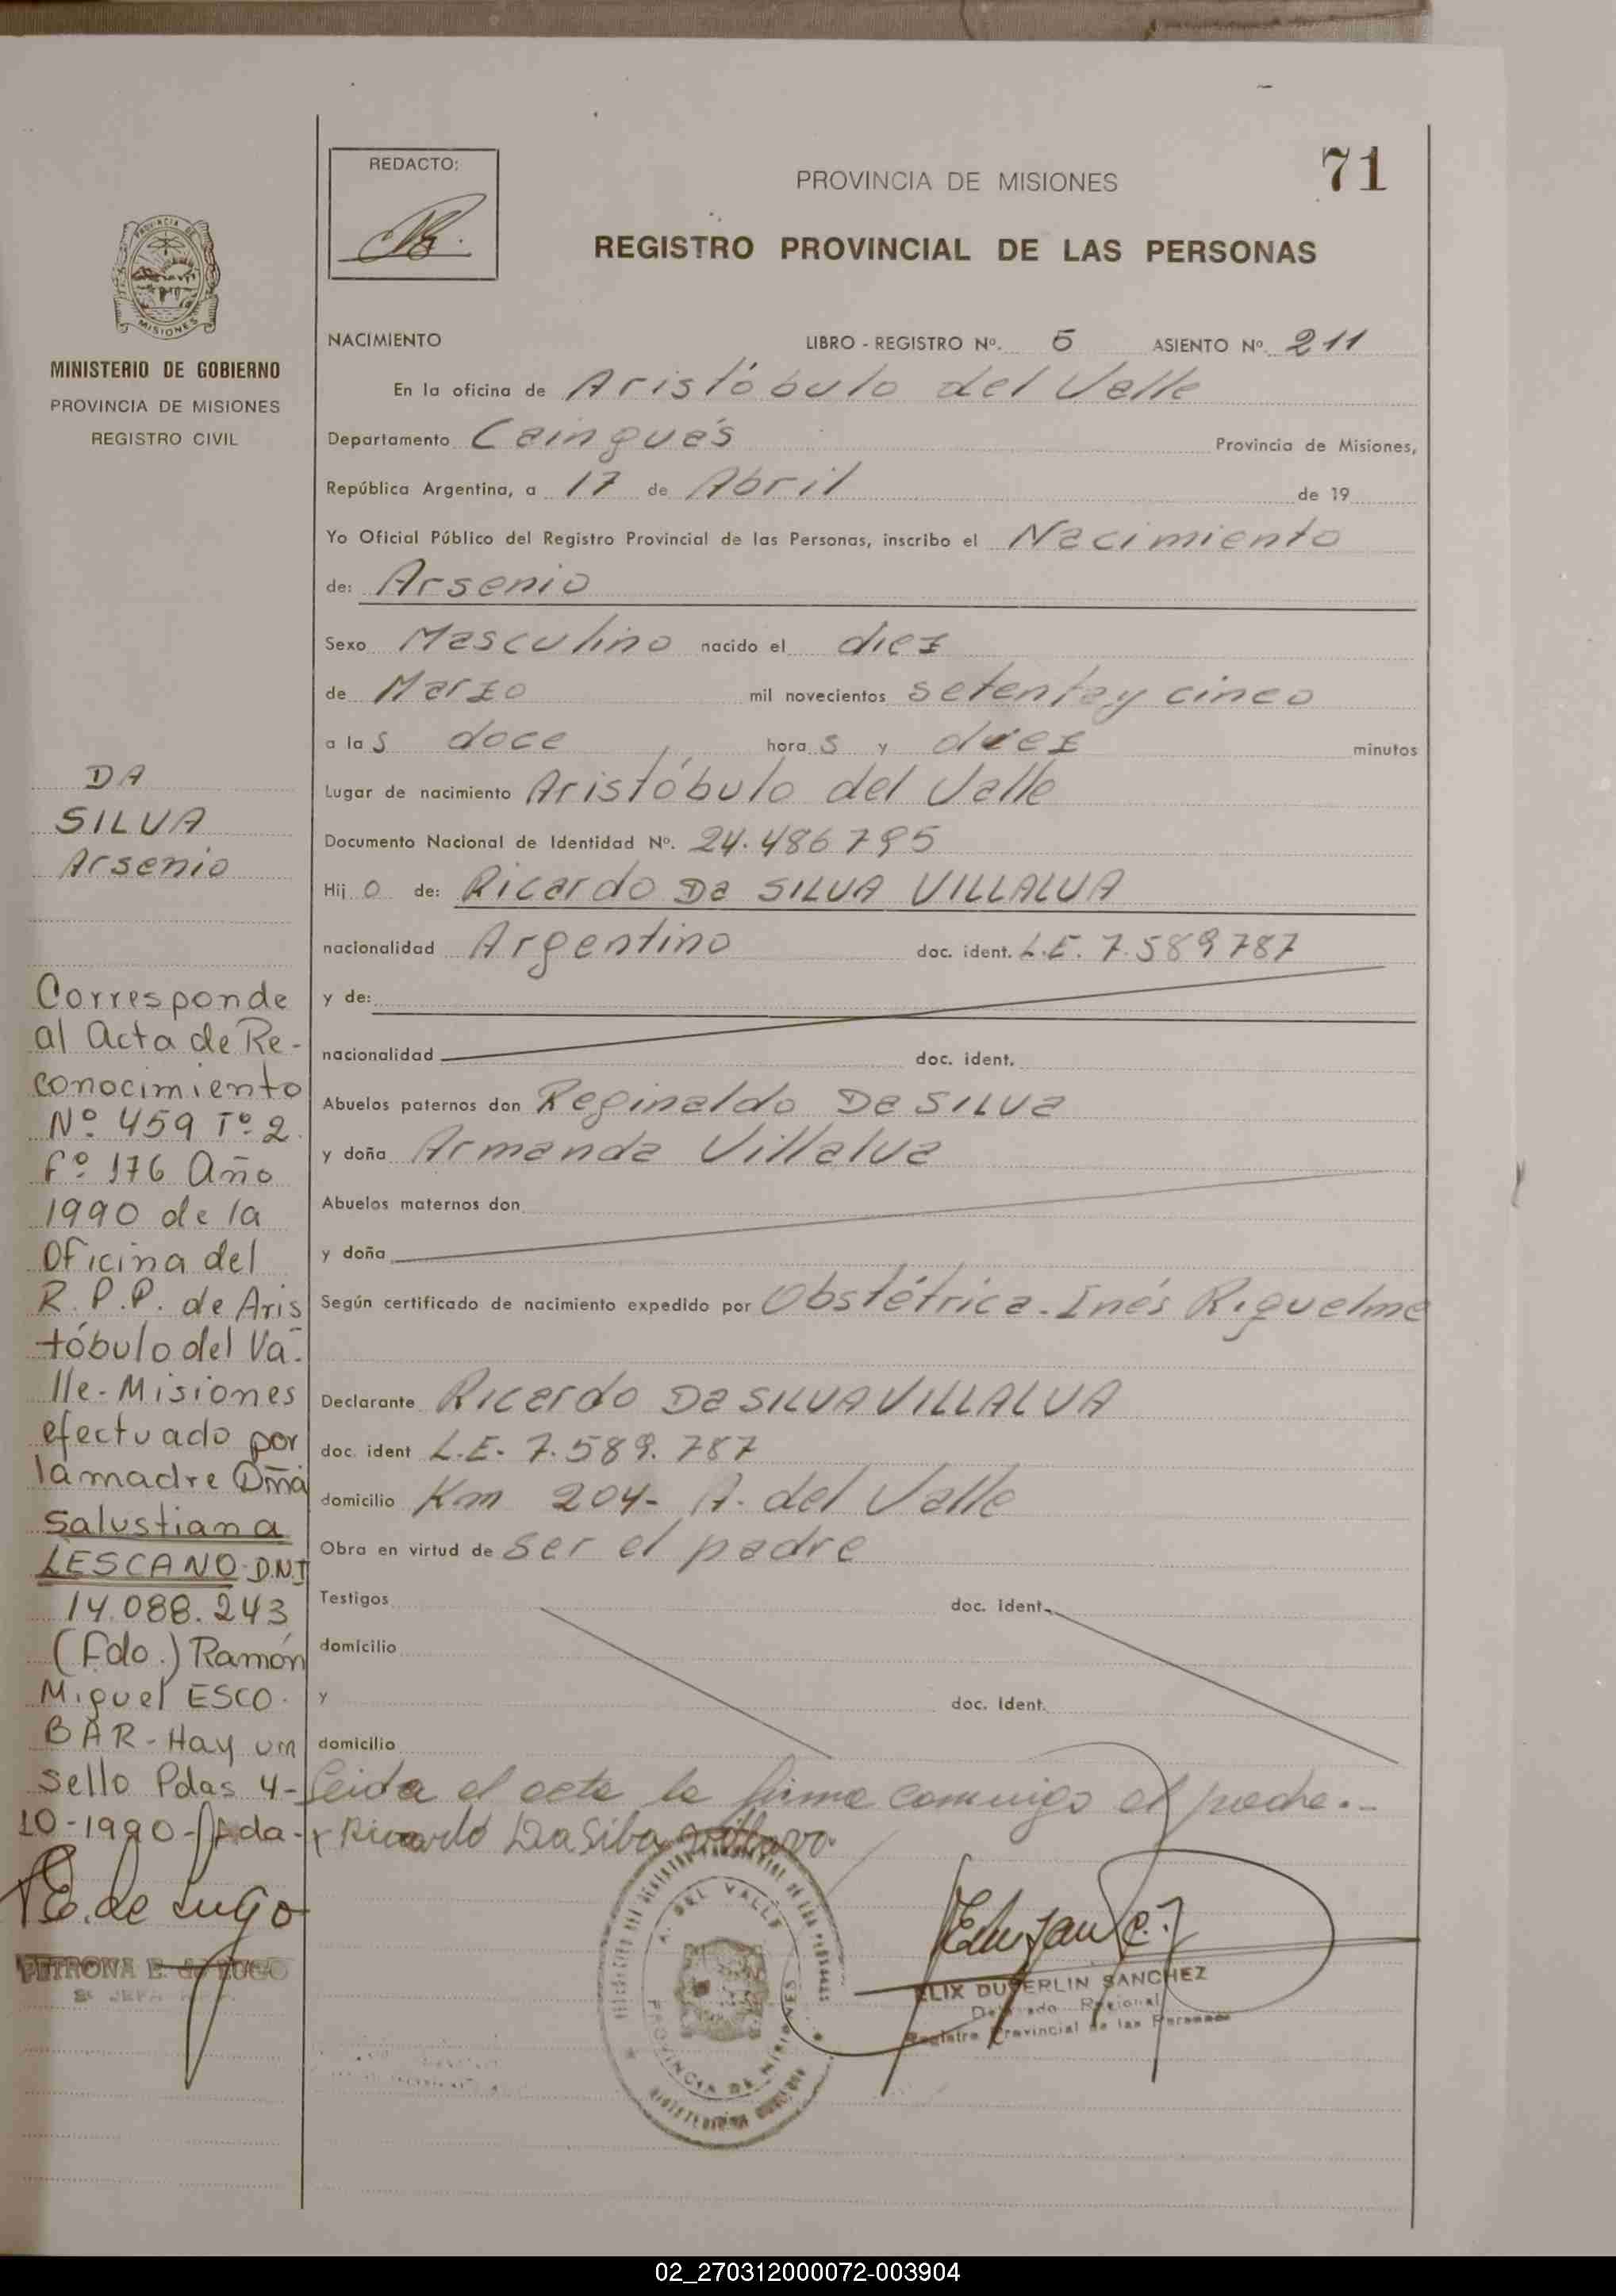 71
REDACTO:
PROVINCIA DE MISIONES
REGISTRO PROVINCIAL DE LAS PERSONAS
PROVINCIA DE
MISIONES
MINISTERIO DE GOBIERNO
PROVINCIA DE MISIONES
REGISTRO CIVIL
NACIMIENTO LIBRO - REGISTRO Nº. 5 ASIENTO Nº. 211
En la oficina de Aristóbulo del Valle
Departamento Cainguás Provincia de Misiones,
República Argentina, a 17 de Abril de 19
Yo Oficial Público del Registro Provincial de las Personas, inscribo el Nacimiento
de: Arsenio
Sexo Masculino nacido el diez
de Marzo mil novecientos setenta y cinco
a las doce horas y diez minutos
Lugar de nacimiento Aristóbulo del Valle
Documento Nacional de Identidad Nº. 24.486795
Hijo de: Ricardo Da SILVA VILLALVA
nacionalidad Argentino doc. ident. L.E. 7.589787
y de:
nacionalidad doc. ident.
Abuelos paternos don Reginaldo Da SILVa
y doña Armanda Villalva
Abuelos maternos don
y doña
Según certificado de nacimiento expedido por Obstétrica - Inés Riquelme
Declarante Ricardo Da SILVA VILLALVA
doc. ident L.E. 7.589.787
domicilio Km 204 - A. del Valle
Obra en virtud de ser el padre
Testigos doc. ident.
domicilio
y doc. Ident.
domicilio
Leida el acta la firma conmigo el padre.-
Ricardo Da Silva
DA
SILVA
Arsenio
Corresponde
al Acta de Re-
conocimiento
Nº 459 Tº 2
Fº 176 Año
1990 de la
Oficina del
R.P.P. de Aris
tóbulo del Va-
lle - Misiones
efectuado por
la madre Dña
Salustiana
LESCANO D.N.I
14.088.243
(Fdo.) Ramón
Miguel ESCO-
BAR - Hay un
sello Pdas 4-
10-1990-
P.E. de Lugo
PETRONA E. de LUGO
A. DEL VALLE
PROVINCIA DE MISIONES
FELIX DUBERLIN SANCHEZ
Delegado Regional
Registro Provincial de las Personas
02_270312000072-003904